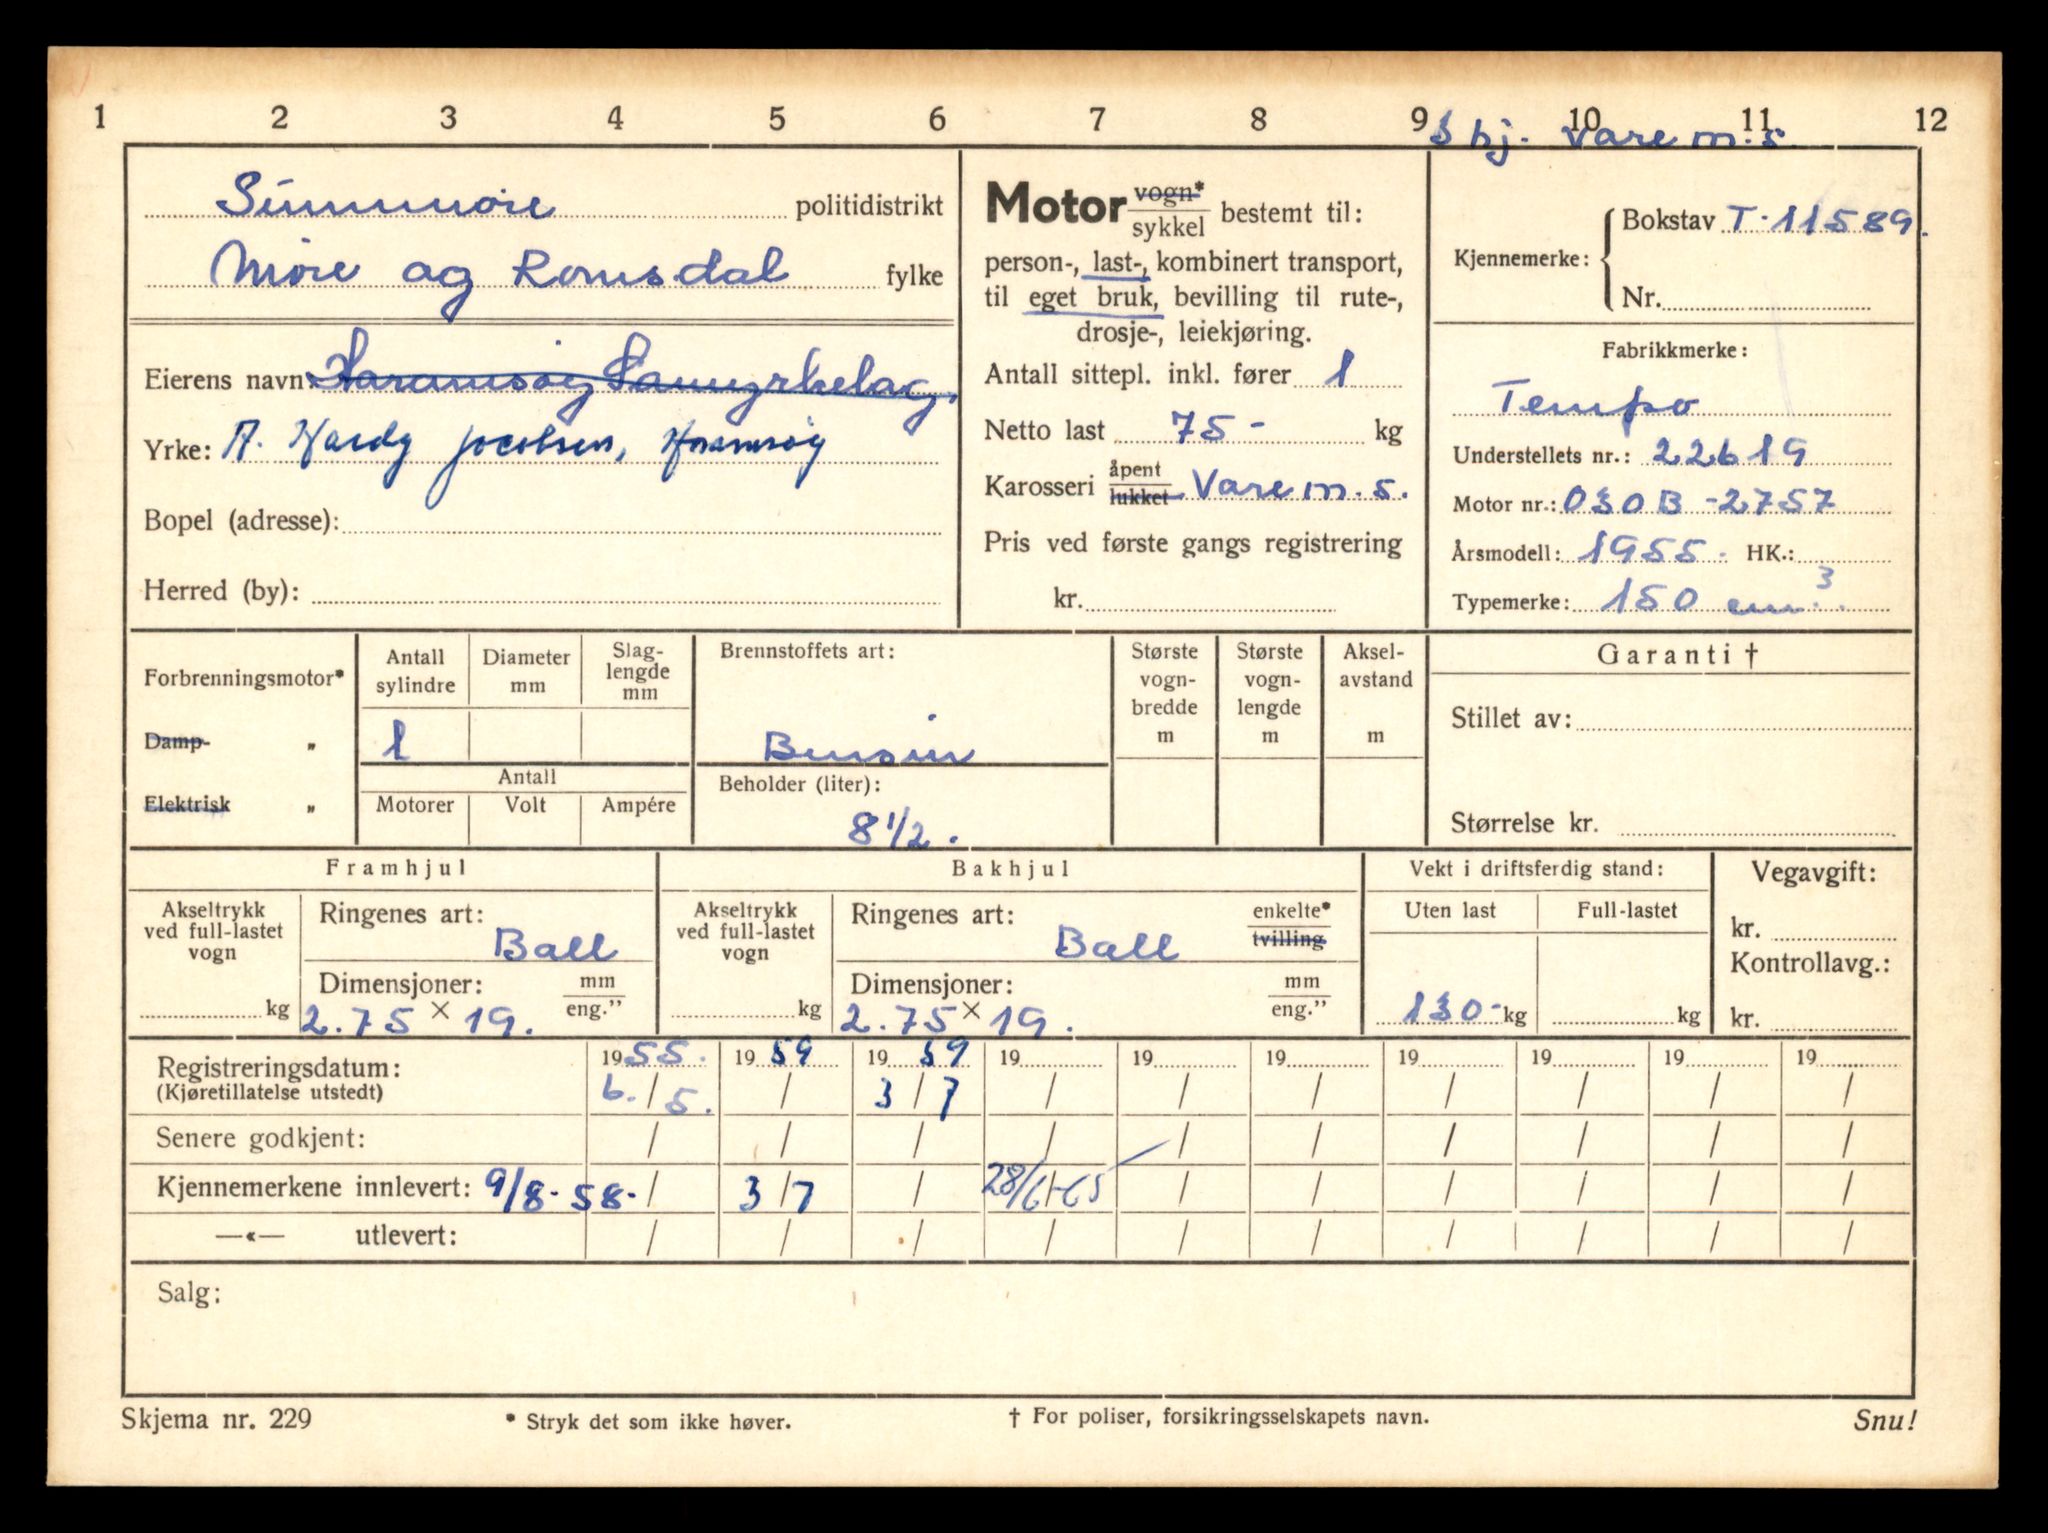 1 2 3 4 5 6 7 8 9 10 11 12
3 hj. Vare m.s.
Sunnmøre politidistrikt
Møre og Romsdal fylke
Eierens navn: Haramsøy Samyrkelag
Yrke: A. Hardy Jacobsen, Haramsøy
Bopel (adresse):
Herred (by):
Motor vogn* / sykkel bestemt til:
person-, last-, kombinert transport,
til eget bruk, bevilling til rute-,
drosje-, leiekjøring.
Antall sittepl. inkl. fører 1
Netto last 75 - kg
Karosseri åpent / lukket Vare m.s.
Pris ved første gangs registrering
kr.
Kjennemerke: Bokstav T-11589.
Nr.
Fabrikkmerke:
Tempo
Understellets nr.: 22619
Motor nr.: 030B - 2757
Årsmodell: 1955. HK.:
Typemerke: 150 cm³.
Forbrenningsmotor*
Damp- „
Elektrisk „
Antall sylindre
Diameter mm
Slaglengde mm
1
Antall
Motorer Volt Ampére
Brennstoffets art:
Bensin
Beholder (liter):
8 1/2.
Største vogn-bredde m
Største vogn-lengde m
Aksel-avstand m
Garanti †
Stillet av:
Størrelse kr.
Framhjul
Akseltrykk ved full-lastet vogn
kg
Ringenes art:
Ball
Dimensjoner: mm / eng.”
2.75 × 19.
Bakhjul
Akseltrykk ved full-lastet vogn
kg
Ringenes art: enkelte* / tvilling
Ball
Dimensjoner: mm / eng.”
2.75 × 19.
Vekt i driftsferdig stand:
Uten last Full-lastet
130- kg kg
Vegavgift:
kr.
Kontrollavg.:
kr.
Registreringsdatum: 1955. 1959 1959 19 19 19 19 19 19 19
(Kjøretillatelse utstedt) 6./5. / 3/7 / / / / / / /
Senere godkjent: / / / / / / / / / /
Kjennemerkene innlevert: 9/8-58- / 3/7 / 28/6-65 / / / / / /
—«— utlevert: / / / / / / / / / /
Salg:
Skjema nr. 229 * Stryk det som ikke høver. † For poliser, forsikringsselskapets navn. Snu!